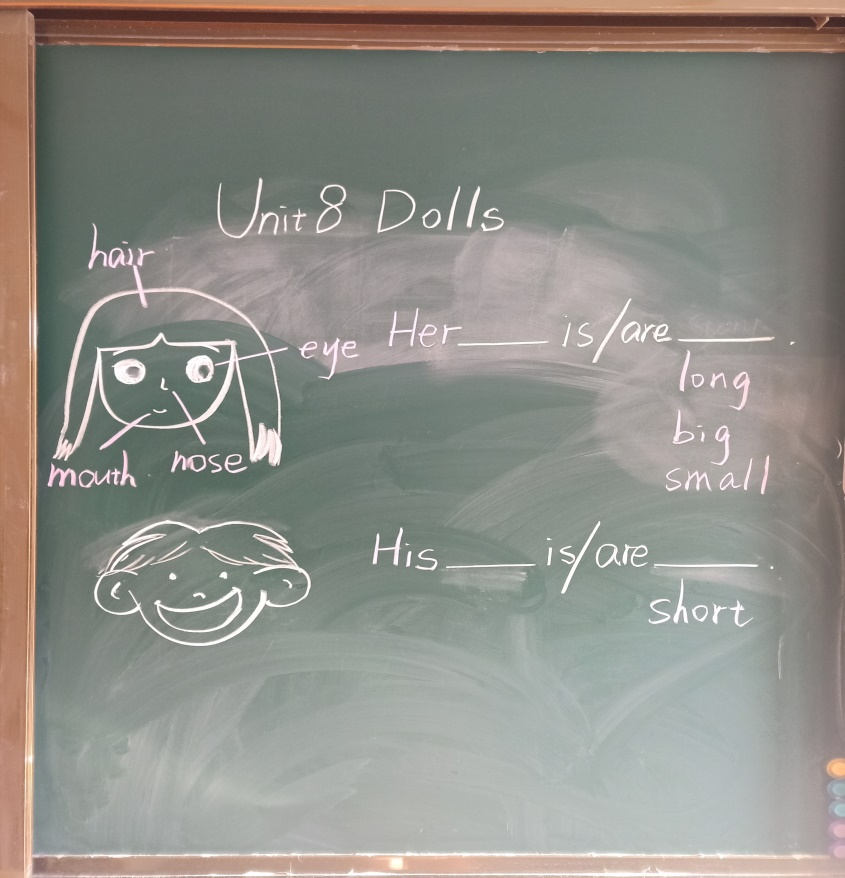 Unit 8 Dolls
hair
eye
mouth
nose
Her____ is/are____.
long
big
small
His____ is/are____.
short